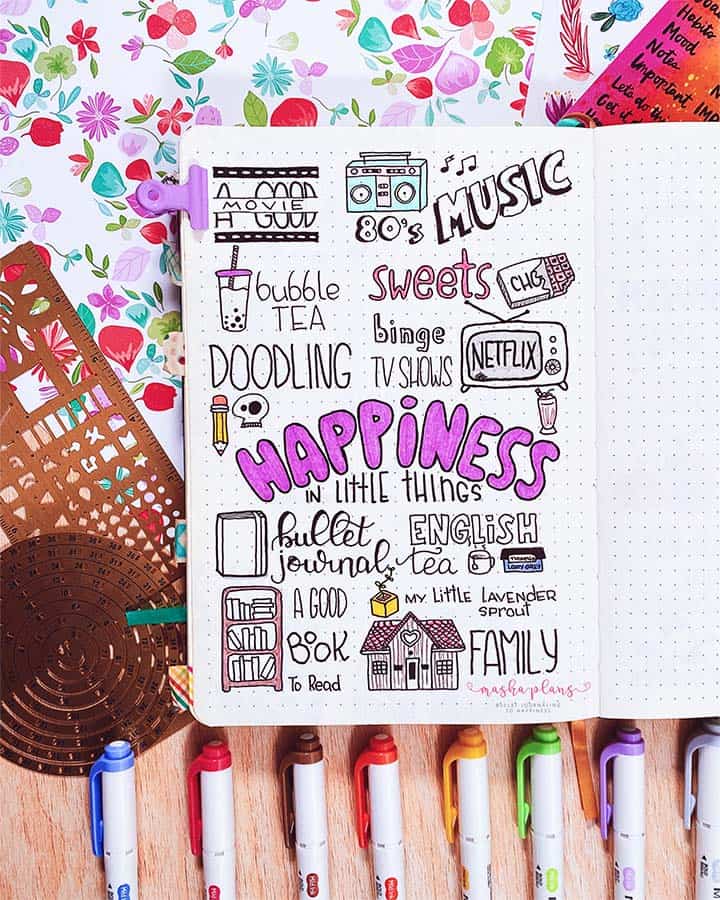 Habits
Mood
Notes
Important
Let's do this
Get it
A GOOD
MOVIE
80's MUSIC
bubble
TEA
sweets
CHC
DOODLING
binge
TV SHOWS
NETFLIX
HAPPINESS
IN LITTLE THINGS
bullet
journal
ENGLISH
tea
A GOOD
BOOK
To Read
MY LITTLE LAVENDER
SPROUT
FAMILY
mashaplans
BULLET JOURNALING
TO HAPPINESS